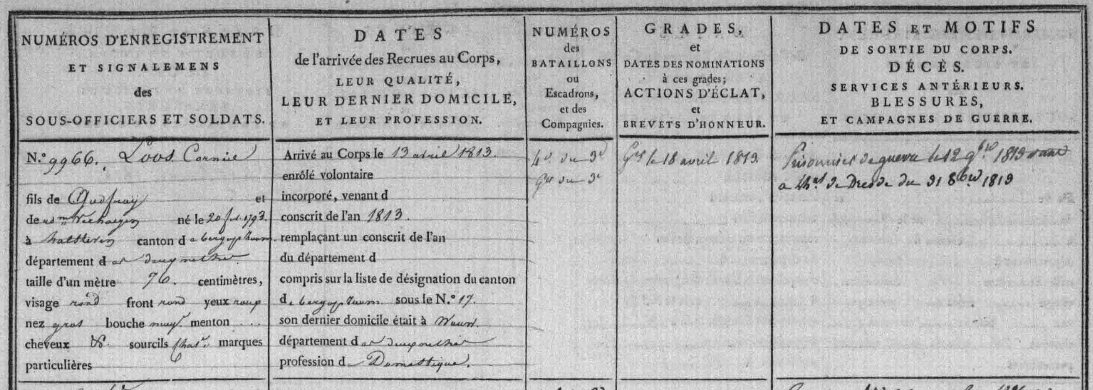 NUMÉROS D'ENREGISTREMENT
ET SIGNALEMENS
des
SOUS-OFFICIERS ET SOLDATS.
DATES
de l'arrivée des Recrues au Corps,
LEUR QUALITÉ,
LEUR DERNIER DOMICILE,
ET LEUR PROFESSION.
NUMÉROS
des
BATAILLONS
ou
Escadrons,
et des
Compagnies.
GRADES,
et
DATES DES NOMINATIONS
à ces grades;
ACTIONS D'ÉCLAT,
et
BREVETS D'HONNEUR.
DATES ET MOTIFS
DE SORTIE DU CORPS.
DÉCÈS.
SERVICES ANTÉRIEURS.
BLESSURES,
ET CAMPAGNES DE GUERRE.
N.º 9966. Loos Cornie
fils de et
de né le 20 1793
à canton d
département d
taille d'un mètre 76. centimètres,
visage rond front rond yeux
nez gros bouche moy. menton
cheveux sourcils chat. marques
particulières
Arrivé au Corps le 13 avril 1813.
enrôlé volontaire
incorporé, venant d
conscrit de l'an 1813.
remplaçant un conscrit de l'an
du département d
compris sur la liste de désignation du canton
d sous le N.º 17.
son dernier domicile était à Wouw.
département d
profession d Domestique.
4e du 3e
du 3e
le 18 avril 1813
Prisonnier de guerre le 12 9bre 1813
de Dresde du 31 8bre 1813